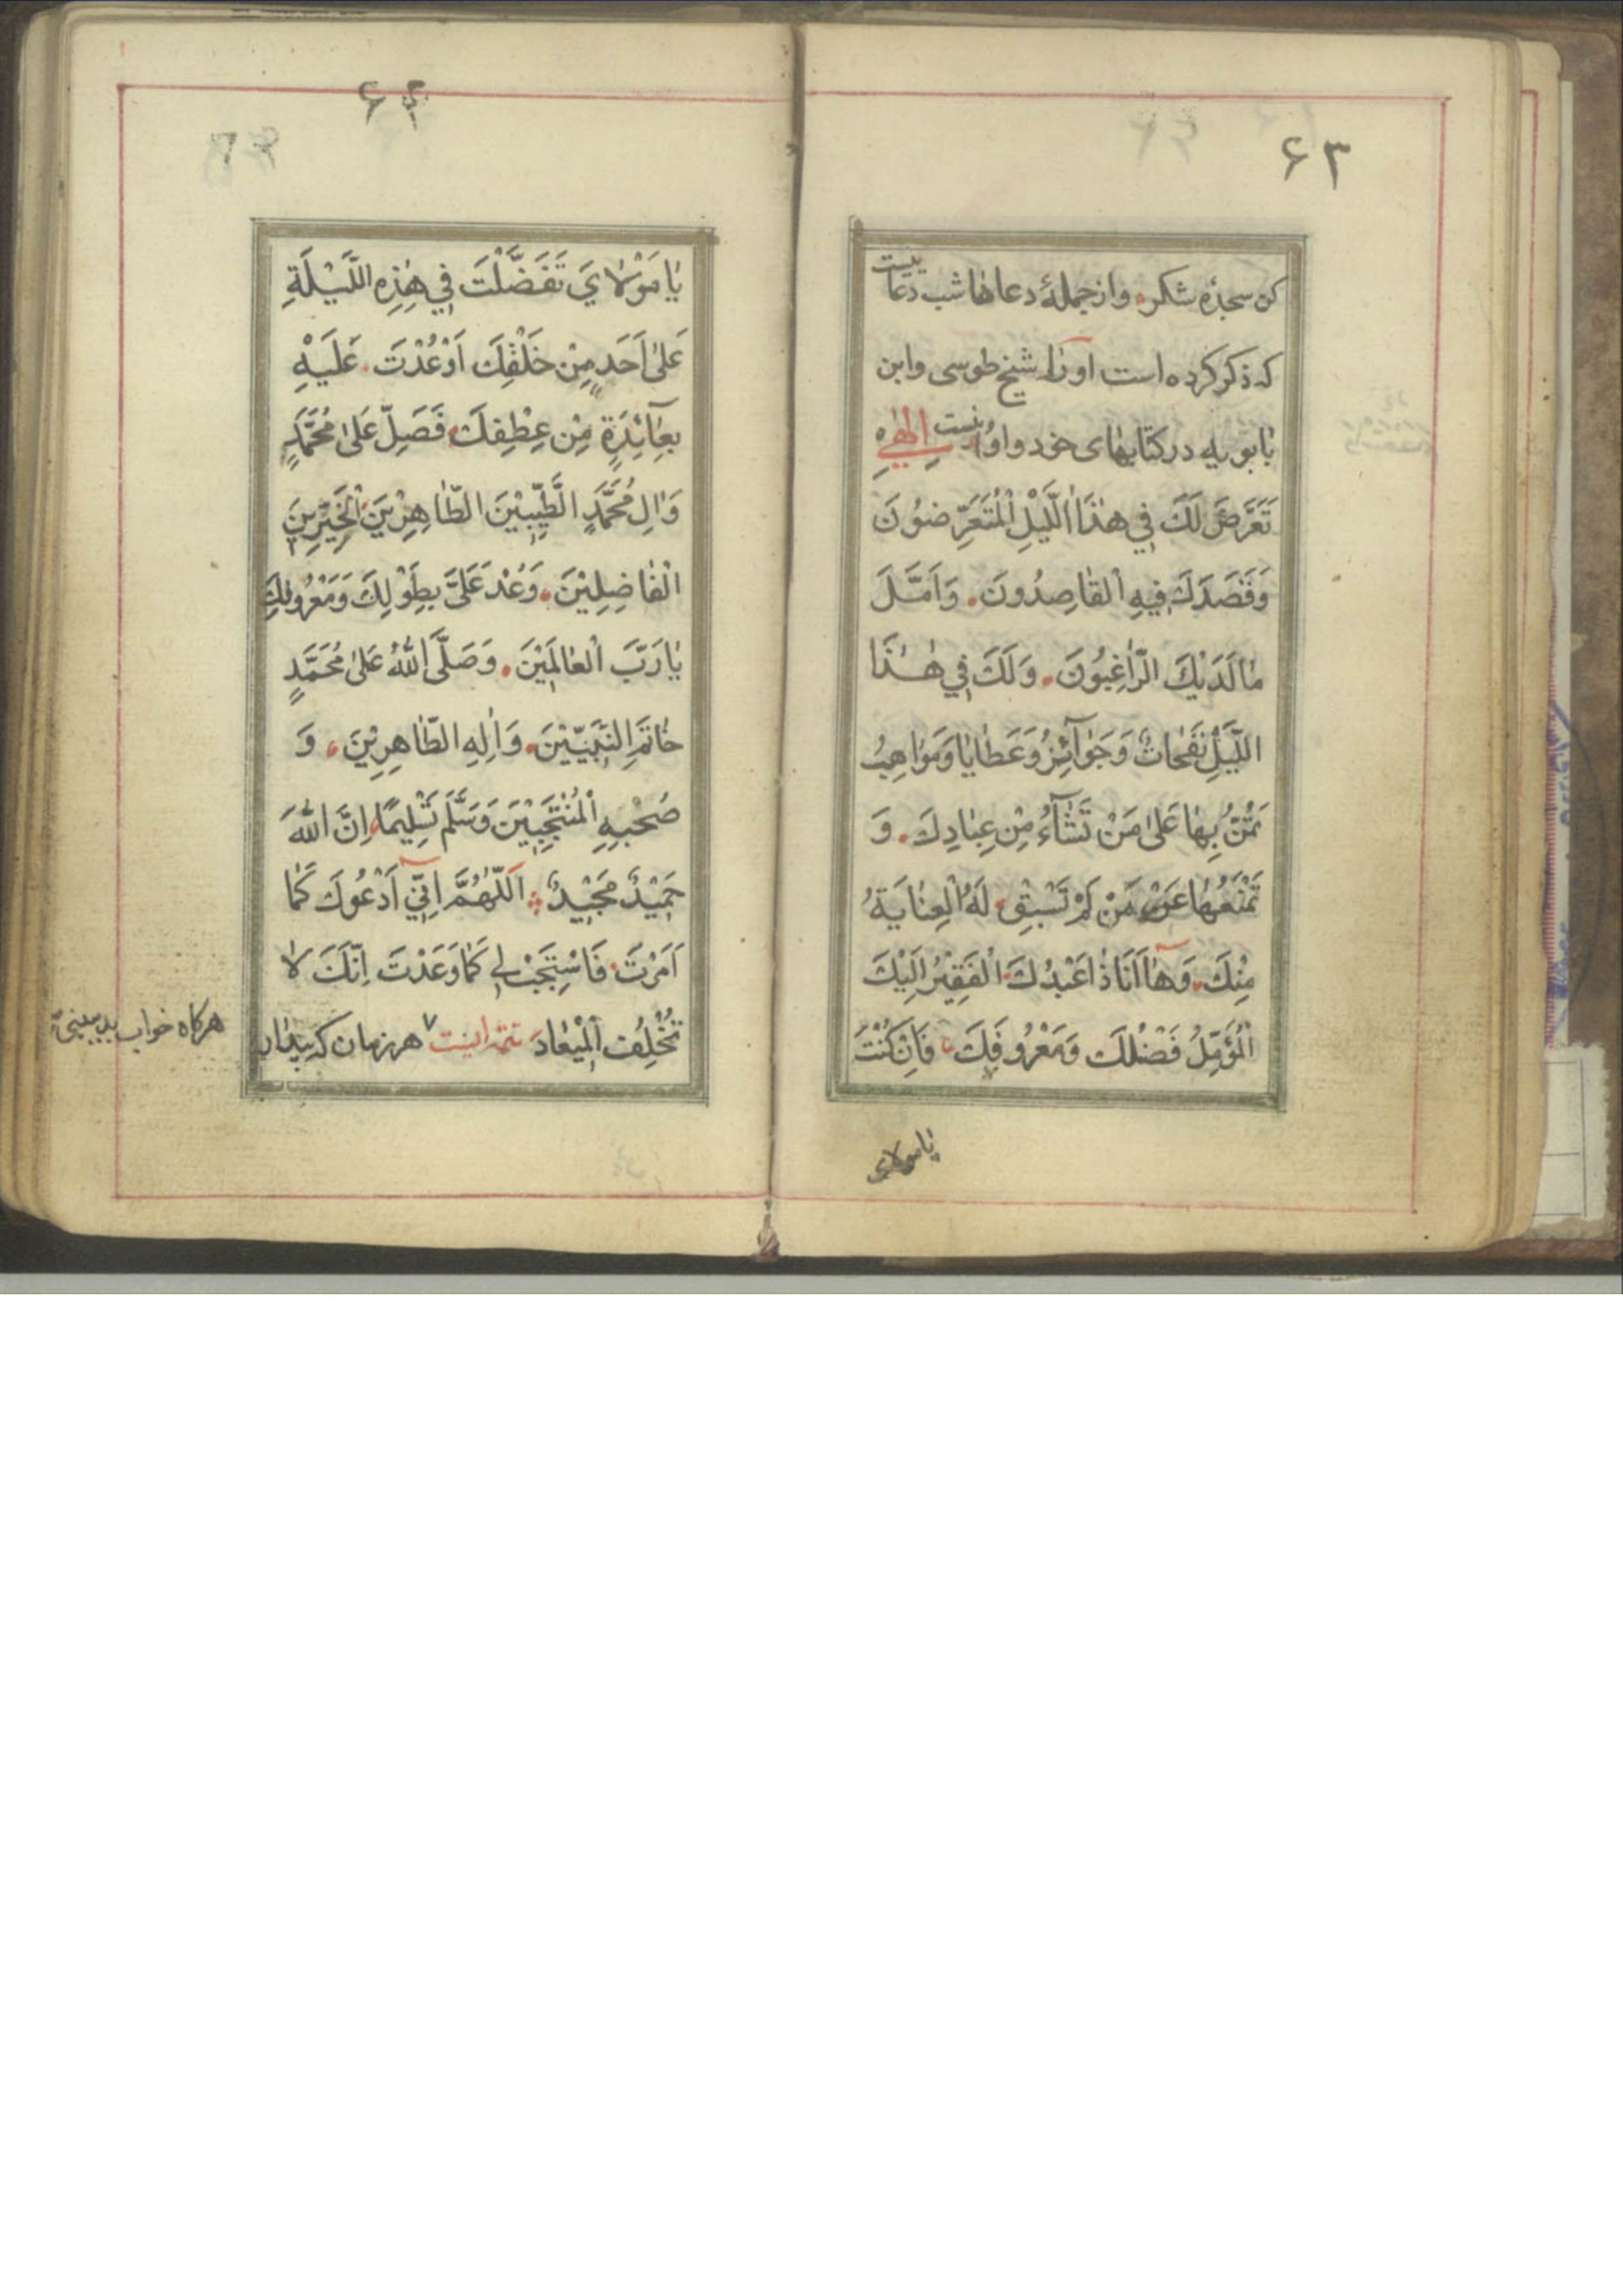 ۶۳
کن سجدهٔ شکر و از جملهٔ دعاهٰا شب دعائیست
که ذکر کرده است اورٰا شیخ طوسی و ابن
بٰابویه در کتابهٰای خود و اوُ اینست اِلٰهٖی
تَعَرَّضَ لَكَ فِي هٰذَا اللَّيْلِ الْمُتَعَرِّضُونَ
وَقَصَدَكَ فِيهِ الْقٰاصِدُونَ وَاَمَّلَ
مٰا لَدَيْكَ الرّٰاغِبُونَ وَلَكَ فِي هٰذَا
اللَّيْلِ نَفَحٰاتٌ وَجَوٰآئِزُ وَعَطٰايٰا وَمَوٰاهِبُ
تَمُنُّ بِهٰا عَلىٰ مَنْ تَشٰآءُ مِنْ عِبٰادِكَ وَ
تَمْنَعُهٰا عَنْ مَنْ لَمْ تَسْبِقْ لَهُ الْعِنٰايَةُ
مِنْكَ وَهٰا اَنَا ذٰا عَبْدُكَ الْفَقِيْرُ اِلَيْكَ
الْمُؤَمِّلُ فَضْلَكَ وَمَعْرُوفَكَ فَاِنْ كُنْتَ
يٰا مولاي
۶۴
يٰا مَوْلاٰيَ تَفَضَّلْتَ فِي هٰذِهِ اللَّيْلَةِ
عَلىٰ اَحَدٍ مِنْ خَلْقِكَ اَوْعُدْتَ عَلَيْهِ
بِعٰآئِدَةٍ مِنْ عِطْفِكَ فَصَلِّ عَلىٰ مُحَمَّدٍ
وَاٰلِ مُحَمَّدٍ الطَّيِّبِيْنَ الطّٰاهِرِيْنَ الْخَيِّرِيْنَ
الْفٰاضِلِيْنَ وَعُدْ عَلَيَّ بِطَوْلِكَ وَمَعْرُوفِكَ
يٰا رَبَّ الْعٰالَمِيْنَ وَصَلَّى اللّٰهُ عَلىٰ مُحَمَّدٍ
خٰاتَمِ النَّبِيّيْنَ وَاٰلِهِ الطّٰاهِرِيْنَ وَ
صَحْبِهِ الْمُنْتَجَبِيْنَ وَسَلَّمَ تَسْلِيمًا اِنَّ اللّٰهَ
حَمِيْدٌ مَجِيْدٌ اَللّٰهُمَّ اِنِّي اَدْعُوكَ كَمٰا
اَمَرْتَ فَاسْتَجِبْ لِي كَمٰا وَعَدْتَ اِنَّكَ لاٰ
تُخْلِفُ الْمِيْعٰادَ تتمه اینست هر زمان که بیدار
هرکاه خواب بد ببینی